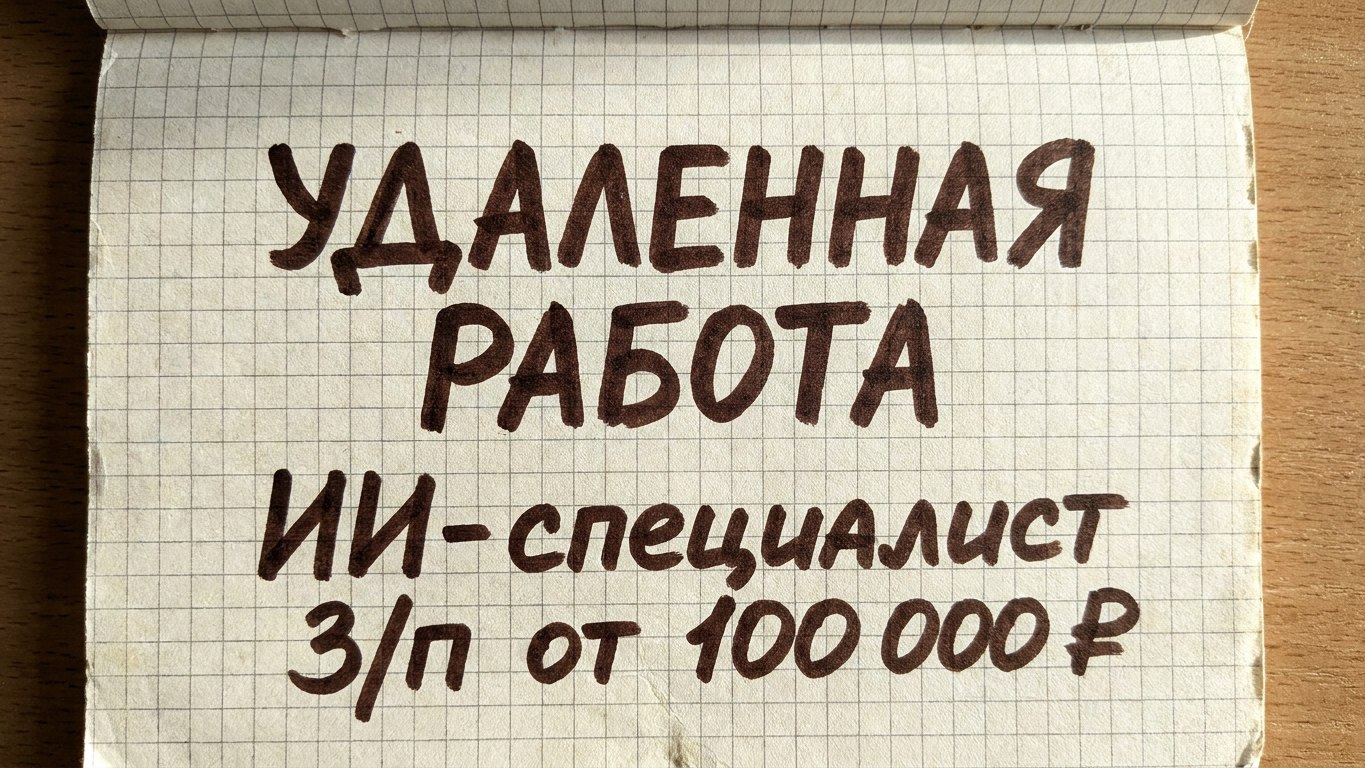 УДАЛЕННАЯ
РАБОТА
ИИ-специалист
З/п от 100 000 ₽